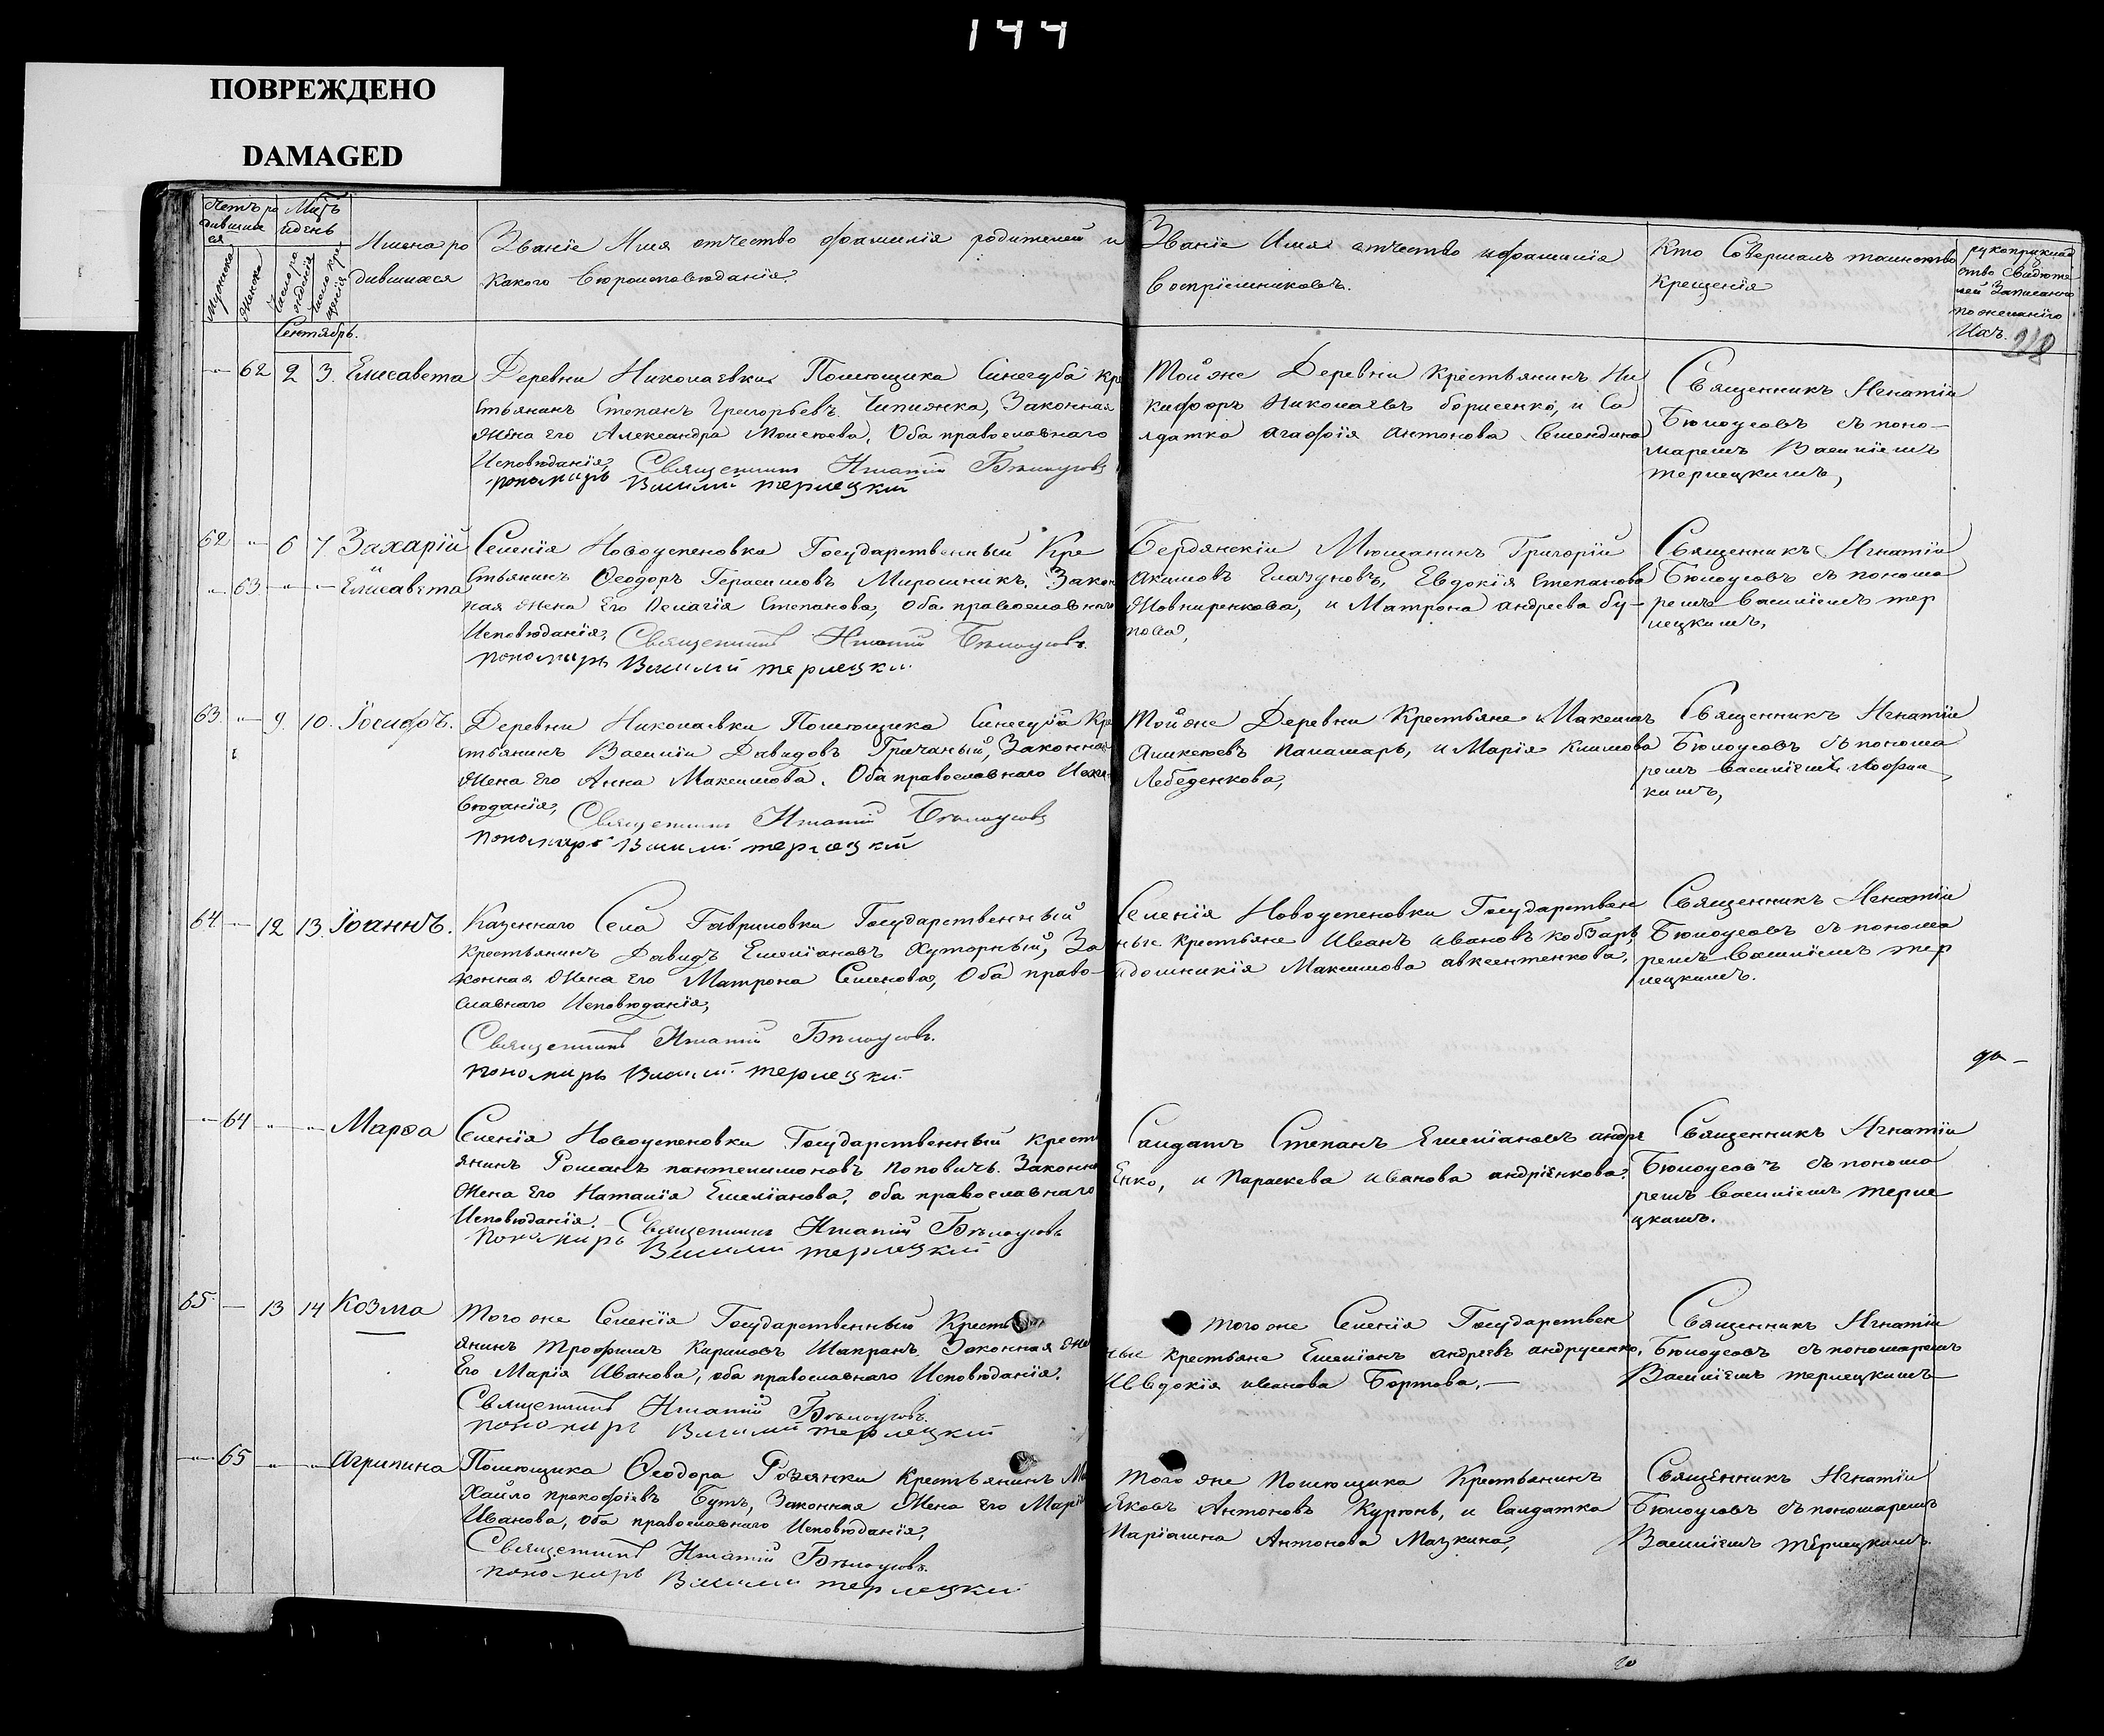 144
ПОВРЕЖДЕНО
DAMAGED
Счетъ ро
дивших
ся
Мужска
Женска
Мцъ
и день
Число ро
жденія
Число кре
щенія
Сентябрь.
Имена ро
дившихся
Званіе Имя отчество фамилія родителей и
какого вѣроисповѣданія.
Званіе Имя отчество и фамилія
воспріемниковъ.
Кто Совершалъ таинство
Крещенія
рукоприклад
ство Свидѣте
лей Записано
по желанію
Ихъ.
62 2 3. Елисавета
Деревни Николаевки Помѣщика Синегуба кре
стьянинъ Степанъ Григорьевъ Чипиянка, Законная
Жена его Александра Моисеева, Оба православнаго
Исповѣданія, Священникъ Игнатій Бѣлоусовъ
пономарь Василій терлецкій
Той же Деревни Крестьянинъ Ни
кифоръ Николаевъ борисенко, и Со
лдатка агафія антонова
Священникъ Игнатіи
Бѣлоусовъ съ поно-
маремъ Василіемъ
терлецкимъ,
62 6 7 Захарій
63 Елисавета
Селенія Новоуспеновка Государственный Кре
стьянинъ Ѳеодоръ Герасимовъ Мирошникъ. Закон
ная жена Его Пелагія Степанова, Оба православнаго
Исповѣданія, Священникъ Игнатій Бѣлоусовъ.
пономарь Василій терлецки
Бердянскіи Мѣщанинъ Григорій
акимовъ Глазуновъ, Евдокія Степанова
Жовниренкова, и Матрона андреева бу-
това,
Священникъ Игнатіи
Бѣлоусовъ съ понома
ремъ Василіемъ тер
лецкимъ,
63. 9. 10. Іосифъ.
Деревни Николаевки Помѣщика Синегуба Кре
стьянинъ Василіи Давидовъ Гричаный, Законная
Жена Его Анна Максимова. Оба православнаго Испо
вѣданія, Священникъ Игнатій Бѣлоусовъ
пономарь Василій терлецкій
Той же Деревни Крестьяне Максимъ
Аликсѣевъ Паламарь, и Марія Климова
Лебеденкова,
Священникъ Игнатіи
Бѣлоусовъ съ понома
ремъ Василіемъ
кимъ,
64 12 13. Іоаннъ.
Казеннаго Села Гавриловки Государственный
крестьянинъ Давидъ Емеліановъ Хуторный, За
конная Жена его Матрона Семенова, Оба право-
славнаго Исповѣданія,
Священникъ Игнатій Бѣлоусовъ.
пономарь Василій терлецки
Селенія Новоуспеновки Государствен
ные крестьяне Иванъ ивановъ кобзарь,
идомникія Максимова авксентенкова,
Священникъ Игнатіи
Бѣлоусовъ съ понома
ремъ Василіемъ тер
лецкимъ.
64 Марѳа
Селенія Новоуспеновки Государственный крестъ
янинъ Романъ пантелимоновъ поповичъ. Законная
Жена Его Наталія Емеліанова, оба православнаго
Исповѣданія. Священникъ Игнатій Бѣлоусовъ
пономарь Василій терлецкій
Солдатъ Степанъ Емеліановъ андре
Енко, и Параскева иванова андріенкова.
Священникъ Игнатіи
Бѣлоусовъ съ понома
ремъ Василіемъ терле
цкимъ.
65. 13 14 Козма
Того же Селенія Государственный Кресть
янинъ трофимъ Кириловъ Шапранъ. Законная же
Его Марія Иванова, оба православнаго Исповѣданія.
Священникъ Игнатій Бѣлоусовъ.
пономарь Василій терлецкій
Того же Селенія Государствен
ные крестьяне Емеліанъ андреевъ андрусенко,
Ивдокія иванова Бортова.
Священникъ Игнатіи
Бѣлоусовъ съ пономаремъ
Василіемъ терлецкимъ
65 агрипина
Помѣщика Ѳеодора Гозянки крестьянинъ Ми
хайло прокофіевъ Бутъ, Законная Жена его Марія
Иванова, Оба православнаго Исповѣданія,
Священникъ Игнатій Бѣлоусовъ.
пономарь Василій терлецки
Того же помѣщика Крестьянинъ
Яковъ Антоновъ Курѣнь, и Солдатка
Маріамна Антонова Мазкина,
Священникъ Игнатіи
Бѣлоусовъ съ пономаремъ
Василіемъ терлецкимъ.